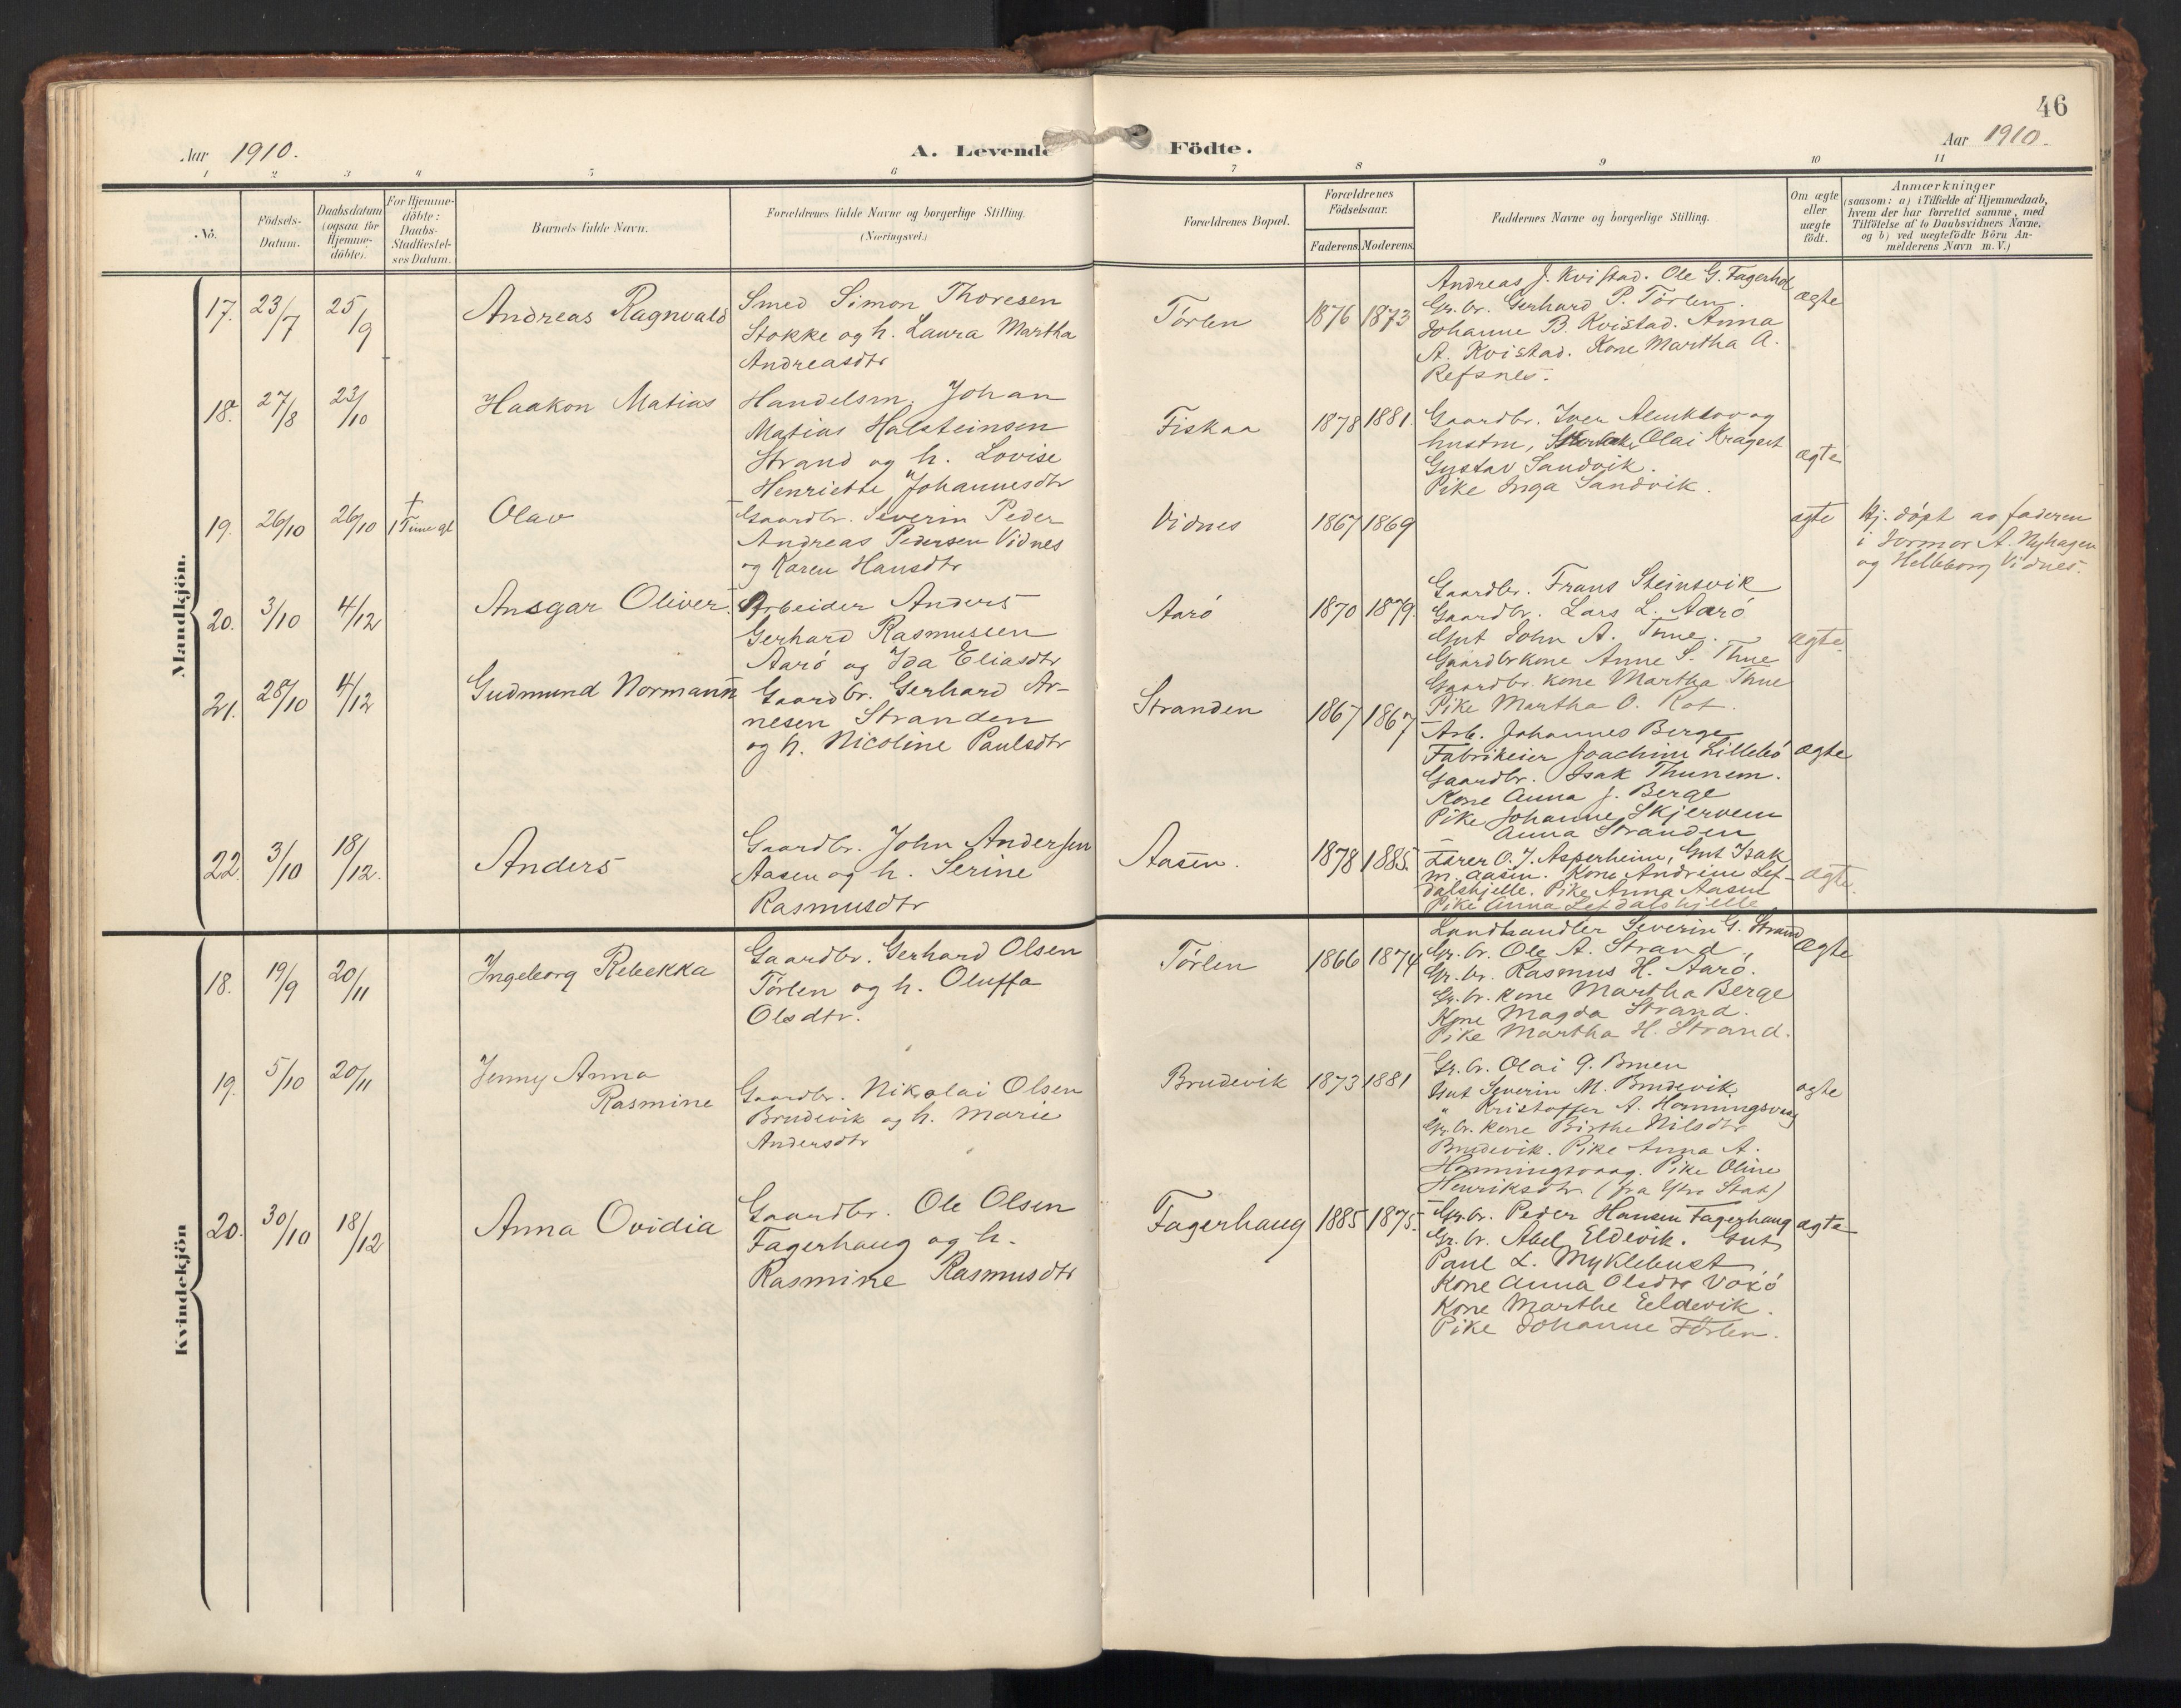 46
Aar 1910.
A. Levende Födte.
Aar 1910.
1 2 3 4 5 6 7 8 9 10 11
No.
Födsels-
Datum.
Daabsdatum
(ogsaa for
Hjemme-
döbte).
For Hjemme-
döbte:
Daabs-
Stadfæstel-
ses Datum.
Barnets fulde Navn.
Forældrenes fulde Navne og borgerlige Stilling.
(Næringsvei.)
Forældrenes Bopæl.
Forældrenes
Födselsaar.
Faderens. Moderens.
Faddernes Navne og borgerlige Stilling.
Om ægte
eller
uægte
födt.
Anmærkninger
(saasom: a) i Tilfælde af Hjemmedaab,
hvem der har forrettet samme, med
Tilföielse af to Daabsvidners Navne,
og b) ved uægtefödte Börn An-
melderens Navn m. V.)
Mandkjön.
17. 23/7 25/9
Andreas Ragnvald
Smed Simon Thoresen
Stokke og h. Laura Martha
Andreasdtr
Tørlen
1876 1873
Andreas J. Kvistad. Ole G. Fagerhol
Gr. br. Gerhard P. Tørlen.
Johanne B. Kvistad. Anna
A. Kvistad. Kone Martha A.
Refsnes.
ægte
18. 27/8 23/10
Haakon Matias
Handelsm. Johan
Matias Halsteinsen
Strand og h. Lovise
Henriette Johannesdtr
Fiskaa
1878 1881.
Gaardbr. Iver Almklov og
hustru, Olai Kragset
Gustav Sandvik.
Pike Inga Sandvik.
ægte
19. 26/10 26/10
†
1 Time gl.
Olav
Gaardbr. Severin Peder
Andreas Pedersen Vidnes
og Karen Hansdtr
Vidnes
1867 1869
ægte
Hj. døpt av faderen
i Jormor A. Nyhagen
og Helleborg Vidnes.
20. 3/10 4/12
Ansgar Oliver.
Arbeider Anders
Gerhard Rasmussen
Aarö og Ida Eliasdtr
Aarö
1870 1879.
Gaardbr. Frans Steinsvik
Gaardbr. Lars L. Aarö
Gut John A. Tue.
Gaardbrkone Anne S. Thue
Gaardbr. kone Martha Thue
Pike Martha O. Kot.
ægte.
21. 28/10 4/12
Gudmund Normann
Gaardbr. Gerhard Ar-
nesen Stranden
og h. Nicoline Paulsdtr
Stranden
1867 1867
Arb. Johannes Berge
Fabrikeier Joachim Lillebö
Gaardbr. Isak Thunem.
Kone Anna J. Berge
Pike Johanne Skjervem
Anna Stranden
ægte
22. 3/10 18/12.
Anders
Gaardbr. John Andersen
Aasen og h. Serine
Rasmusdtr
Aasen.
1878 1885.
Lærer O. J. Asperheim, Gut Isak
M. Aasen. Kone Andrine Lef-
dalshjelle. Pike Anna Aasen
Pike Anna Lefdalshjelle
ægte.
Kvindekjön
18. 19/9 20/11
Ingeborg Rebekka
Gaardbr. Gerhard Olsen
Tørlen og h. Oluffa
Olsdtr.
Tørlen
1866 1874
Landhandler Severin G. Strand
Gr. br. Ole A. Strand,
Gr. br. Rasmus H. Aarö.
Gr. br. kone Martha Berge
Kone Magda Strand.
Pike Martha H. Strand.
ægte
19. 5/10 20/11
Jenny Anna
Rasmine
Gaardbr. Nikolai Olsen
Brudevik og h. Marie
Andersdtr
Brudevik
1873 1881
Gr. br. Olai G. Bruen
Gut Severin M. Brudevik
" Kristoffer A. Honningsvaag
Gr. br. kone Birthe Nilsdtr
Brudevik. Pike Anna A.
Honningsvaag. Pike Oline
Henriksdtr (fra Ytre Stat)
ægte
20. 30/10 18/12
Anna Ovidia
Gaardbr. Ole Olsen
Fagerhaug og h.
Rasmine Rasmusdtr
Fagerhaug
1885 1875.
Gr. br. Peder Hansen Fagerhaug
Gr. br. Abel Eldevik. Gut
Paul L. Myklebust
Kone Anna Olsdtr Voxö
Kone Marthe Eeldevik.
Pike Johanne Tørlen.
ægte